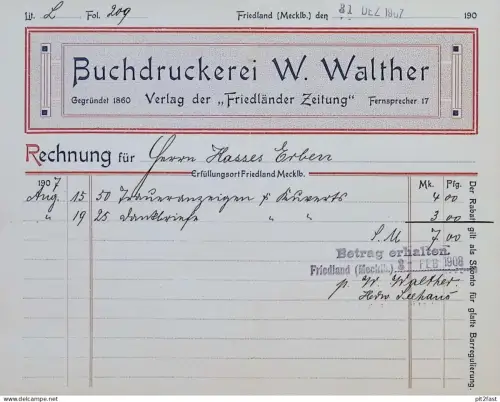 Lit. L Fol. 209 Friedland (Mecklb.) den 31 DEZ 1907 190
Buchdruckerei W. Walther
Gegründet 1860 Verlag der „Friedländer Zeitung" Fernsprecher 17
Rechnung für Herrn Hasses Erben
Erfüllungsort Friedland Mecklb.
1907 Mk. Pfg.
Aug. 15 50 Traueranzeigen & Kuverts 4 00
" 19 25 Dankbriefe " " 3 00
S. M 7 00
Betrag erhalten.
Friedland (Mecklb.) FEB 1908
p. W. Walther.
Der Rabat gilt als Skonto für glatte Barregulierung.
www.delcampe.net
pit2fast